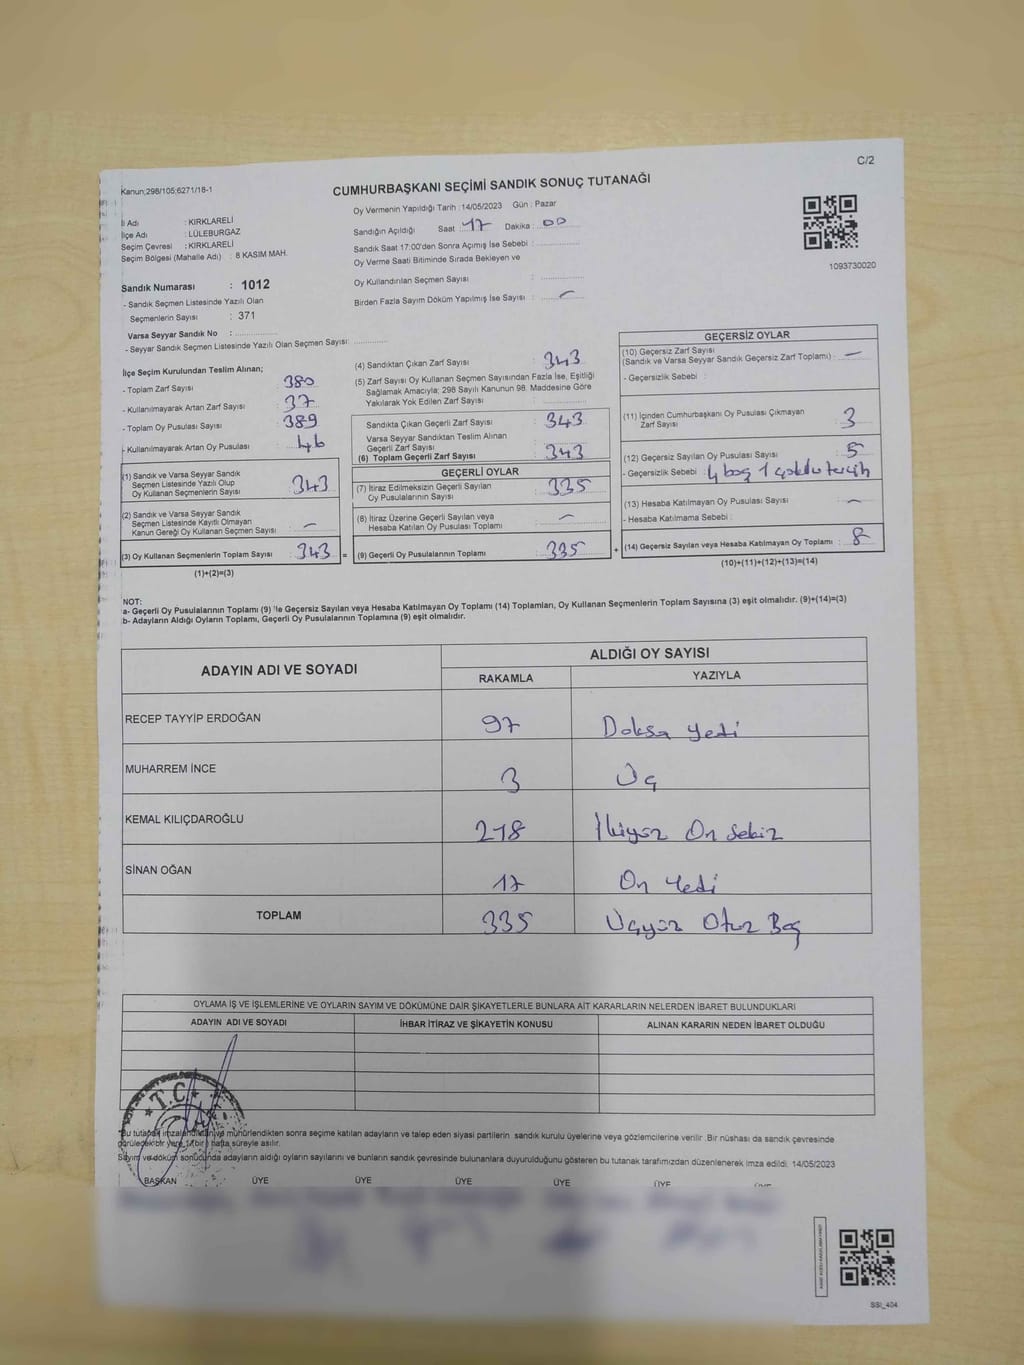 C/2
Kanun:298/105;6271/18-1
CUMHURBAŞKANI SEÇİMİ SANDIK SONUÇ TUTANAĞI
İl Adı : KIRKLARELİ
İlçe Adı : LÜLEBURGAZ
Seçim Çevresi : KIRKLARELİ
Seçim Bölgesi (Mahalle Adı) : 8 KASIM MAH.
Sandık Numarası : 1012
- Sandık Seçmen Listesinde Yazılı Olan
Seçmenlerin Sayısı : 371
Varsa Seyyar Sandık No :
- Seyyar Sandık Seçmen Listesinde Yazılı Olan Seçmen Sayısı:
Oy Vermenin Yapıldığı Tarih : 14/05/2023 Gün : Pazar
Sandığın Açıldığı Saat : 17 Dakika : 00
Sandık Saat 17:00'den Sonra Açımış İse Sebebi :
Oy Verme Saati Bitiminde Sırada Bekleyen ve
Oy Kullandırılan Seçmen Sayısı :
Birden Fazla Sayım Döküm Yapılmış İse Sayısı : –
1093730020
İlçe Seçim Kurulundan Teslim Alınan;
- Toplam Zarf Sayısı : 380
- Kullanılmayarak Artan Zarf Sayısı : 37
- Toplam Oy Pusulası Sayısı : 389
- Kullanılmayarak Artan Oy Pusulası : 46
(1) Sandık ve Varsa Seyyar Sandık
Seçmen Listesinde Yazılı Olup
Oy Kullanan Seçmenlerin Sayısı : 343
(2) Sandık ve Varsa Seyyar Sandık
Seçmen Listesinde Kayıtlı Olmayan
Kanun Gereği Oy Kullanan Seçmen Sayısı : –
(3) Oy Kullanan Seçmenlerin Toplam Sayısı : 343 =
(1)+(2)=(3)
(4) Sandıktan Çıkan Zarf Sayısı : 343
(5) Zarf Sayısı Oy Kullanan Seçmen Sayısından Fazla İse, Eşitliği
Sağlamak Amacıyla; 298 Sayılı Kanunun 98. Maddesine Göre
Yakılarak Yok Edilen Zarf Sayısı :
Sandıkta Çıkan Geçerli Zarf Sayısı : 343
Varsa Seyyar Sandıktan Teslim Alınan
Geçerli Zarf Sayısı :
(6) Toplam Geçerli Zarf Sayısı : 343
GEÇERLİ OYLAR
(7) İtiraz Edilmeksizin Geçerli Sayılan
Oy Pusulalarının Sayısı : 335
(8) İtiraz Üzerine Geçerli Sayılan veya
Hesaba Katılan Oy Pusulası Toplamı : –
(9) Geçerli Oy Pusulalarının Toplamı : 335 +
GEÇERSİZ OYLAR
(10) Geçersiz Zarf Sayısı
(Sandık ve Varsa Seyyar Sandık Geçersiz Zarf Toplamı) : –
- Geçersizlik Sebebi :
(11) İçinden Cumhurbaşkanı Oy Pusulası Çıkmayan
Zarf Sayısı : 3
(12) Geçersiz Sayılan Oy Pusulası Sayısı : 5
- Geçersizlik Sebebi : 4 boş 1 çoklu tercih
(13) Hesaba Katılmayan Oy Pusulası Sayısı : –
- Hesaba Katılmama Sebebi :
(14) Geçersiz Sayılan veya Hesaba Katılmayan Oy Toplamı : 8
(10)+(11)+(12)+(13)=(14)
NOT:
a- Geçerli Oy Pusulalarının Toplamı (9) 'le Geçersiz Sayılan veya Hesaba Katılmayan Oy Toplamı (14) Toplamları, Oy Kullanan Seçmenlerin Toplam Sayısına (3) eşit olmalıdır. (9)+(14)=(3)
b- Adayların Aldığı Oyların Toplamı, Geçerli Oy Pusulalarının Toplamına (9) eşit olmalıdır.
ADAYIN ADI VE SOYADI
ALDIĞI OY SAYISI
RAKAMLA YAZIYLA
RECEP TAYYİP ERDOĞAN 97 Doksa yedi
MUHARREM İNCE 3 Üç
KEMAL KILIÇDAROĞLU 218 İkiyüz On Sekiz
SİNAN OĞAN 17 On Yedi
TOPLAM 335 Üçyüz Otuz Beş
OYLAMA İŞ VE İŞLEMLERİNE VE OYLARIN SAYIM VE DÖKÜMÜNE DAİR ŞİKAYETLERLE BUNLARA AİT KARARLARIN NELERDEN İBARET BULUNDUKLARI
ADAYIN ADI VE SOYADI İHBAR İTİRAZ VE ŞİKAYETİN KONUSU ALINAN KARARIN NEDEN İBARET OLDUĞU
T.C.
Bu tutanak imzalandıktan ve mühürlendikten sonra seçime katılan adayların ve talep eden siyasi partilerin sandık kurulu üyelerine veya gözlemcilerine verilir. Bir nüshası da sandık çevresinde
görülecek bir yere 1(bir) hafta süreyle asılır.
Sayım ve döküm sonucunda adayların aldığı oyların sayılarını ve bunların sandık çevresinde bulunanlara duyurulduğunu gösteren bu tutanak tarafımızdan düzenlenerek imza edildi. 14/05/2023
BAŞKAN ÜYE ÜYE ÜYE ÜYE ÜYE
SSI_404